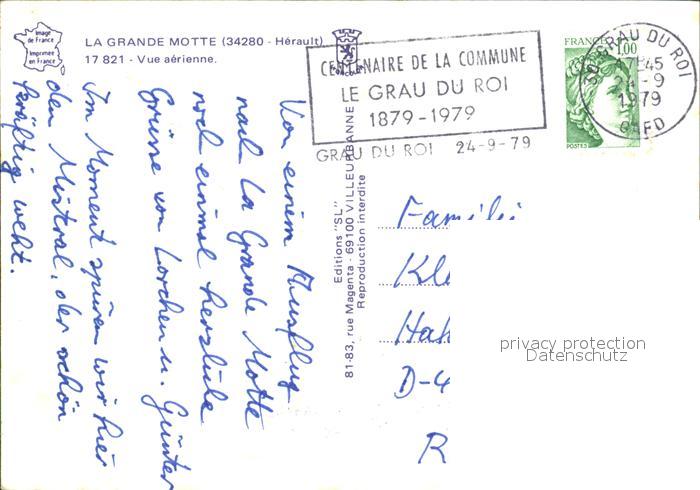 Image
de France
Imprimée
en France
LA GRANDE MOTTE (34280 - Hérault)
17 821 - Vue aérienne.
Von einem Ausflug
nach La Grande Motte
noch einmal herzliche
Grüsse von Lorchen u. Günter
Im Moment spüren wir hier
den Mistral, der schön
kräftig weht.
Editions "SL"
81-83, rue Magenta - 69100 VILLEURBANNE
Reproduction interdite
CENTENAIRE DE LA COMMUNE
LE GRAU DU ROI
1879-1979
GRAU DU ROI 24-9-79
FRANCE
1,00
POSTES
30 GRAU DU ROI
17H45
24-9
1979
GARD
Famili
Kl
Hah
D-4
R
privacy protection
Datenschutz